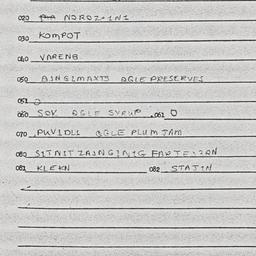 020 NOROZ-INI
030 KOMPOT
040 VARENB
050 AINGIMAXTS AGLE PRESERVES
051
060 SOK AGLE SYRUP .061 O
070 PUVIDLI AGLE PLUM JAM
080 SITNIT
081 KLEKN 082 STATIN